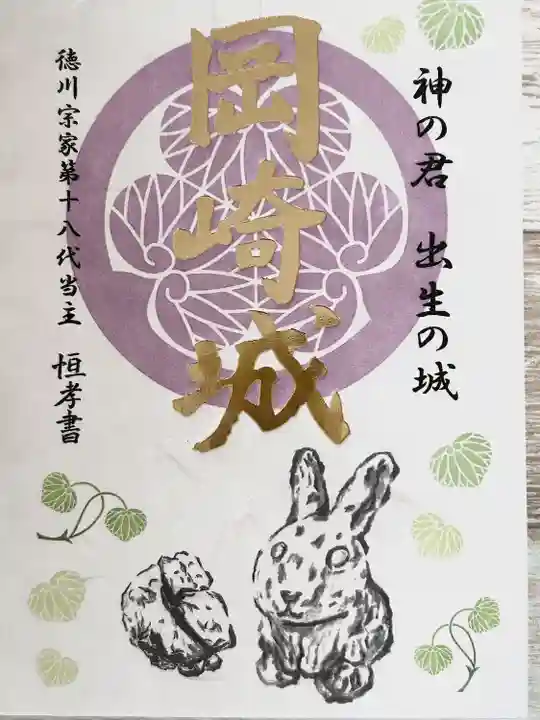 神の君 出生の城
岡崎城
徳川宗家第十八代当主 恒孝書